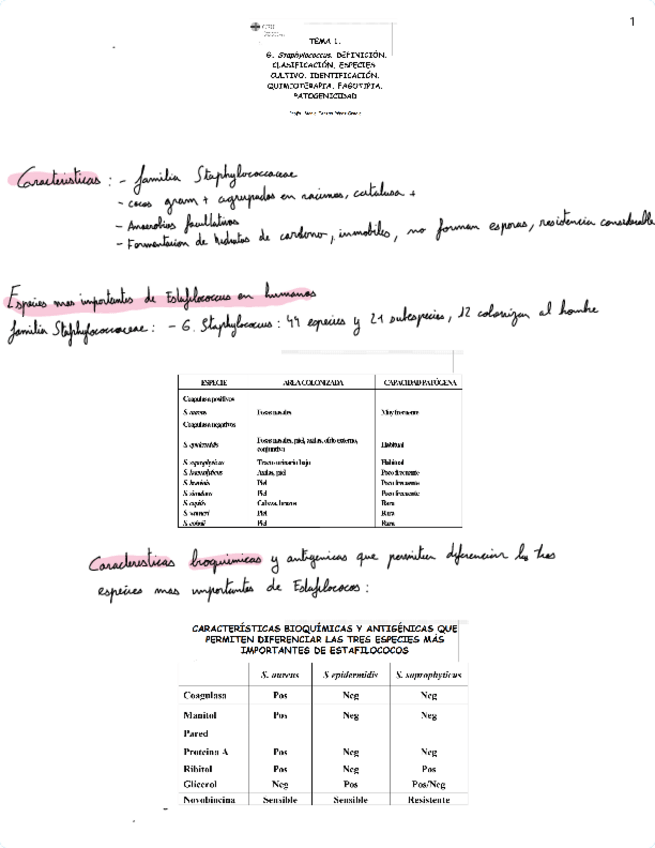 1
TEMA 1.
G. Staphylococcus. DEFINICIÓN.
CLASIFICACIÓN. ESPECIES
CULTIVO. IDENTIFICACIÓN.
QUIMIOTERAPIA. FAGOTIPIA.
PATOGENICIDAD
Características : - familia Staphylococcaceae
- cocos gram + agrupados en racimos, catalasa +
- Anaerobios facultativos
- Fermentacion de hidratos de carbono, inmobiles, no forman esporas, resistencia considerable
Especies mas importantes de Estafilococcus en humanos
familia Staphylococcaceae : - G. Staphylococcus : 44 especies y 21 subespecies, 12 colonizan al hombre
ESPECIE ÁREA COLONIZADA CAPACIDAD PATÓGENA
Coagulasa positivos
S. aureus Fosas nasales Muy frecuente
Coagulasa negativos
S. epidermidis Fosas nasales, piel, axilas, oído externo, conjuntiva Habitual
S. saprophyticus Tracto urinario bajo Habitual
S. haemolyticus Axilas, piel Poco frecuente
S. hominis Piel Poco frecuente
S. simulans Piel Poco frecuente
S. capitis Cabeza, brazos Rara
S. warneri Piel Rara
S. cohnii Piel Rara
Características bioquimicas y antigenicas que permiten diferenciar las tres
especies mas importantes de Estafilococos :
CARACTERÍSTICAS BIOQUÍMICAS Y ANTIGÉNICAS QUE
PERMITEN DIFERENCIAR LAS TRES ESPECIES MÁS
IMPORTANTES DE ESTAFILOCOCOS
S. aureus S epidermidis S. saprophyticus
Coagulasa Pos Neg Neg
Manitol Pos Neg Neg
Pared
Proteína A Pos Neg Neg
Ribitol Pos Neg Pos
Glicerol Neg Pos Pos/Neg
Novobiocina Sensible Sensible Resistente